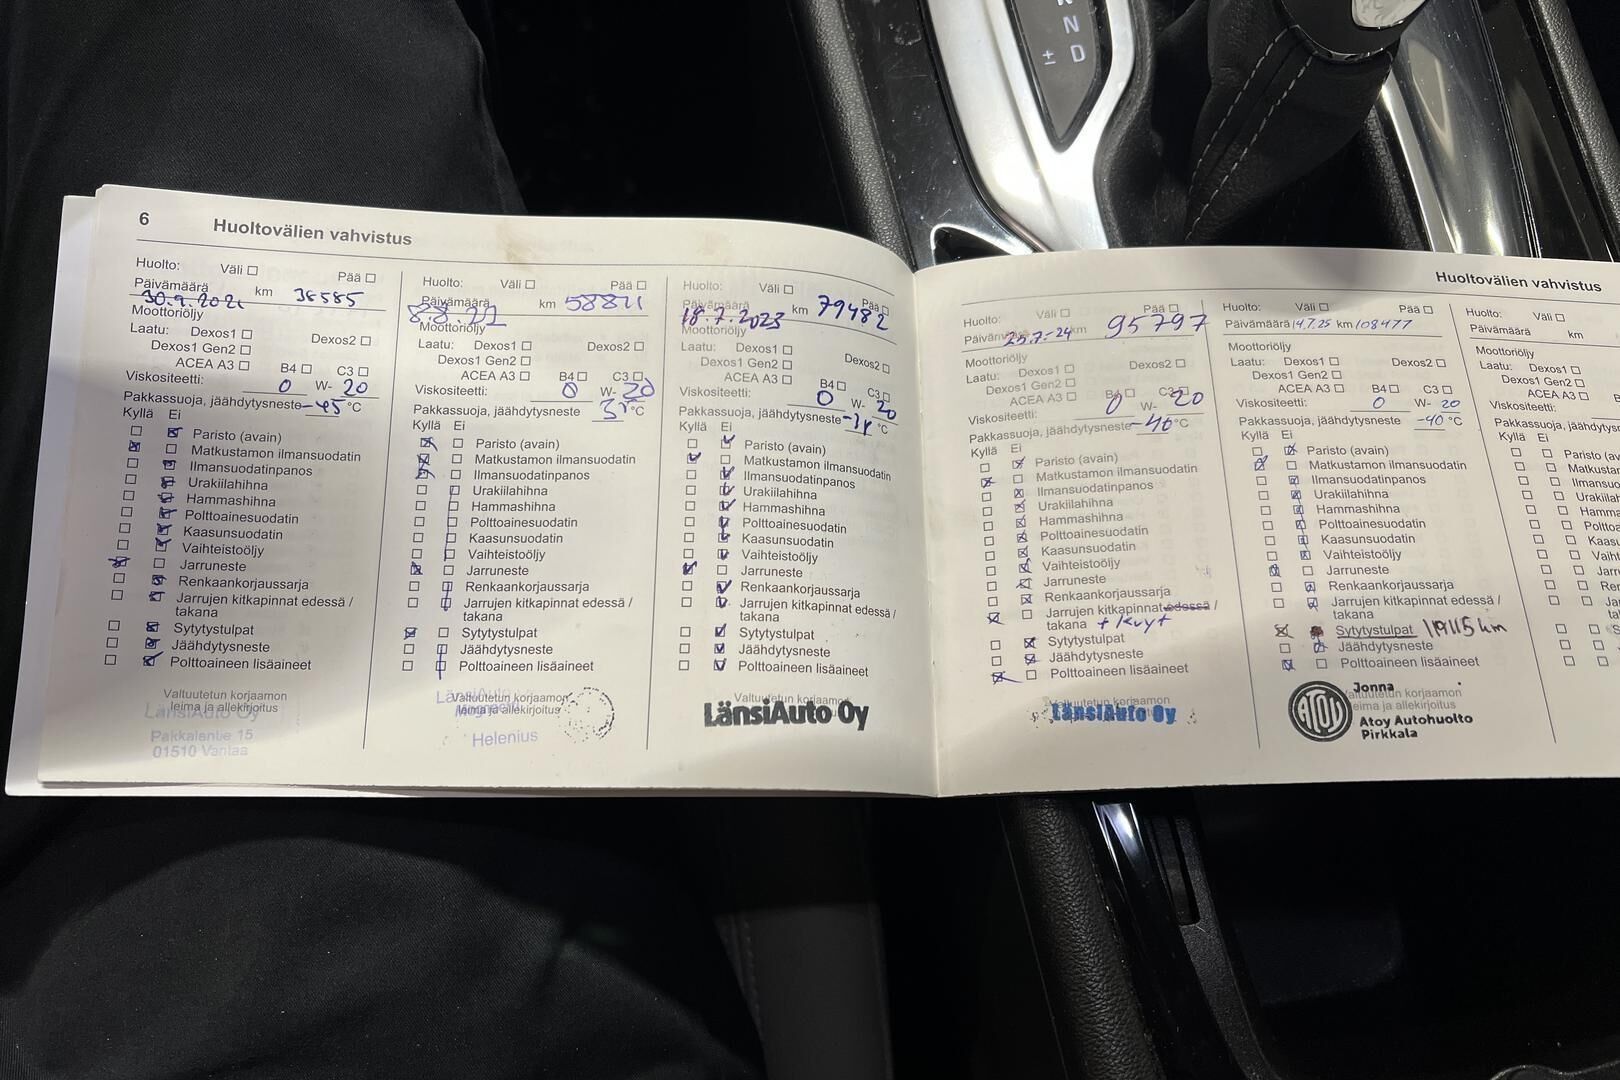 N
± D
6 Huoltovälien vahvistus
Huolto: Väli Pää
Päivämäärä 30.9.2021 km 38585
Moottoriöljy
Laatu: Dexos1 Dexos2
Dexos1 Gen2
ACEA A3 B4 C3
Viskositeetti: 0 W- 20
Pakkassuoja, jäähdytysneste -45 °C
Kyllä Ei
Paristo (avain)
Matkustamon ilmansuodatin
Ilmansuodatinpanos
Urakiilahihna
Hammashihna
Polttoainesuodatin
Kaasunsuodatin
Vaihteistoöljy
Jarruneste
Renkaankorjaussarja
Jarrujen kitkapinnat edessä /
takana
Sytytystulpat
Jäähdytysneste
Polttoaineen lisäaineet
Valtuutetun korjaamon
leima ja allekirjoitus
LänsiAuto Oy
Pakkalantie 15
01510 Vantaa
Huolto: Väli Pää
Päivämäärä 8.8.22 km 58821
Moottoriöljy
Laatu: Dexos1 Dexos2
Dexos1 Gen2
ACEA A3 B4 C3
Viskositeetti: 0 W- 20
Pakkassuoja, jäähdytysneste °C
Kyllä Ei
Paristo (avain)
Matkustamon ilmansuodatin
Ilmansuodatinpanos
Urakiilahihna
Hammashihna
Polttoainesuodatin
Kaasunsuodatin
Vaihteistoöljy
Jarruneste
Renkaankorjaussarja
Jarrujen kitkapinnat edessä /
takana
Sytytystulpat
Jäähdytysneste
Polttoaineen lisäaineet
Valtuutetun korjaamon
leima ja allekirjoitus
LänsiAuto
Helenius
Huolto: Väli Pää
Päivämäärä 18.7.2023 km 79482
Moottoriöljy
Laatu: Dexos1 Dexos2
Dexos1 Gen2
ACEA A3 B4 C3
Viskositeetti: 0 W- 20
Pakkassuoja, jäähdytysneste °C
Kyllä Ei
Paristo (avain)
Matkustamon ilmansuodatin
Ilmansuodatinpanos
Urakiilahihna
Hammashihna
Polttoainesuodatin
Kaasunsuodatin
Vaihteistoöljy
Jarruneste
Renkaankorjaussarja
Jarrujen kitkapinnat edessä /
takana
Sytytystulpat
Jäähdytysneste
Polttoaineen lisäaineet
Valtuutetun korjaamon
LänsiAuto Oy
Huoltovälien vahvistus
Huolto: Väli Pää
Päivämäärä 25.7.-24 km 95797
Moottoriöljy
Laatu: Dexos1 Dexos2
Dexos1 Gen2
ACEA A3 B4 C3
Viskositeetti: 0 W- 20
Pakkassuoja, jäähdytysneste -40 °C
Kyllä Ei
Paristo (avain)
Matkustamon ilmansuodatin
Ilmansuodatinpanos
Urakiilahihna
Hammashihna
Polttoainesuodatin
Kaasunsuodatin
Vaihteistoöljy
Jarruneste
Renkaankorjaussarja
Jarrujen kitkapinnat edessä /
takana
Sytytystulpat
Jäähdytysneste
Polttoaineen lisäaineet
Valtuutetun korjaamon
LänsiAuto Oy
Huolto: Väli Pää
Päivämäärä 14.7.25 km 108477
Moottoriöljy
Laatu: Dexos1 Dexos2
Dexos1 Gen2
ACEA A3 B4 C3
Viskositeetti: 0 W- 20
Pakkassuoja, jäähdytysneste -40 °C
Kyllä Ei
Paristo (avain)
Matkustamon ilmansuodatin
Ilmansuodatinpanos
Urakiilahihna
Hammashihna
Polttoainesuodatin
Kaasunsuodatin
Vaihteistoöljy
Jarruneste
Renkaankorjaussarja
Jarrujen kitkapinnat edessä /
takana
Sytytystulpat km
Jäähdytysneste
Polttoaineen lisäaineet
Valtuutetun korjaamon
leima ja allekirjoitus
ATOY
Jonna
Atoy Autohuolto
Pirkkala
Huolto: Väli
Päivämäärä km
Moottoriöljy
Laatu: Dexos1
Dexos1 Gen2
ACEA A3
Viskositeetti:
Pakkassuoja, jäähdytysn
Kyllä Ei
Paristo (av
Matkus
Ilmans
Urakiila
Hamma
Polttoa
Kaasu
Vaiht
Jarru
Ren
Ja
ta
S